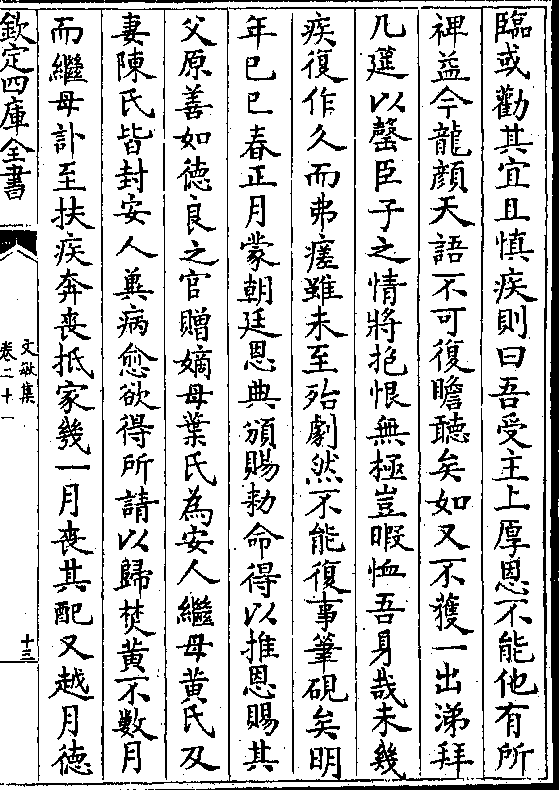 臨或勸其宜且慎疾則曰吾受主上厚恩不能他有所
裨益今龍顔天語不可復瞻聽矣如又不獲一出涕拜
几筵以罄臣子之情將抱恨無極豈暇恤吾身哉未幾
疾復作久而弗瘥雖未至殆劇然不能復事筆硯矣明
年己巳春正月蒙朝廷恩典頒賜勅命得以推恩賜其
父原善如德良之官贈嫡母葉氏為安人繼母黄氏及
妻陳氏皆封安人冀病愈欲得所請以歸焚黄不數月
而繼母訃至扶疾奔喪抵家幾一月喪其配又越月德
欽定四庫全書
文敏集
卷二十一
十三